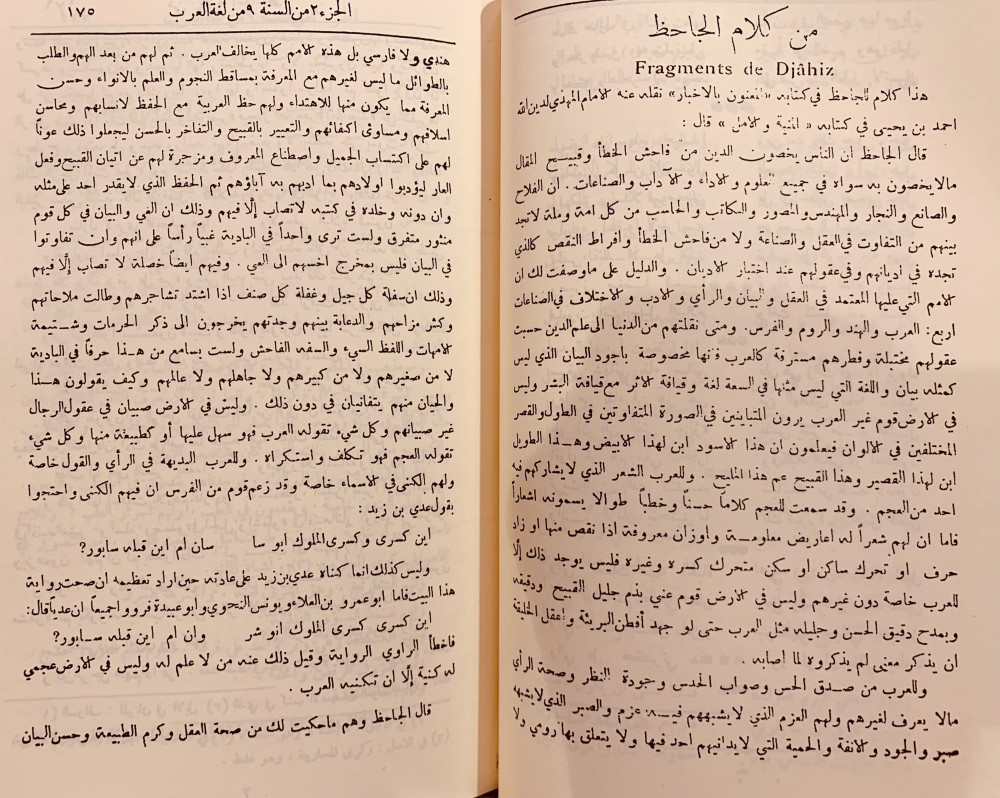 من كلام الجاحظ
Fragments de Djâhiz
هذا كلام للجاحظ في كتابه «المعنون بالاخبار» نقله عنه الامام المهدي لدين الله
احمد بن يحيى في كتابه « المنية والامل » قال :
قال الجاحظ ان الناس يخصون الدين من فاحش الخطأ وقبيح المقال
مالا يخصون به سواه في جميع العلوم والاراء والآداب والصناعات . ان الفلاح
والصانع والنجار والمهندس والمصور والكاتب والحاسب من كل امة وملة لاتجد
بينهم من التفاوت في العقل والصناعة ولا من فاحش الخطأ وافراط النقص كالذي
تجده في اديانهم وفي عقولهم عند اختبار الاديان . والدليل على ماوصفت لك ان
الامم التي عليها المعتمد في العقل والبيان والرأي والادب والاختلاف في الصناعات
اربع : العرب والهند والروم والفرس. ومتى نقلتهم من الدنيا الى علم الدين حسبت
عقولهم مختبلة وفطرهم مسترقة كالعرب فانها مخصوصة باجود البيان الذي ليس
كمثله بيان واللغة التي ليس مثلها في السعة لغة وقيافة الاثر مع قيافة البشر وليس
في الارض قوم غير العرب يرون المتباينين في الصورة المتفاوتين في الطول والقصر
المختلفين في الالوان فيعلمون ان هذا الاسود ابن لهذا الابيض وهذا الطويل
ابن لهذا القصير وهذا القبيح عم هذا المليح . وللعرب الشعر الذي لايشاركهم فيه
احد من العجم . وقد سمعت للعجم كلاماً حسناً وخطباً طوالا يسمونه اشعاراً
فاما ان لهم شعراً له اعاريض معلومة واوزان معروفة اذا نقص منها او زاد
حرف او تحرك ساكن او سكن متحرك كسره وغيره فليس يوجد ذلك إلّا
للعرب خاصة دون غيرهم وليس في الارض قوم عني بذم جليل القبيح ودقيقه
وبمدح دقيق الحسن وجليله مثل العرب حتى لو جهد أفطن البريئة واعقل الخليقة
ان يذكر معنى لم يذكروه لما اصابه .
وللعرب من صدق الحس وصواب الحدس وجودة النظر وصحة الرأي
مالا يعرف لغيرهم ولهم العزم الذي لايشبههم فيه عزم والصبر الذي لايشبهه
صبر والجود والانفة والحمية التي لايدانيهم احد فيها ولا يتعلق بها رومي ولا
الجزء ٢ من السنة ٩ من لغة العرب ١٧٥
هندي ولا فارسي بل هذه الامم كلها يخالف العرب . ثم لهم من بعد الهم والطلب
بالطوائل ما ليس لغيرهم مع المعرفة بمساقط النجوم والعلم بالانواء وحسن
المعرفة مما يكون منها للاهتداء ولهم حظ العربية مع الحفظ لانسابهم ومحاسن
اسلافهم ومساوئ اكفائهم والتعيير بالقبيح والتفاخر بالحسن ليجعلوا ذلك عوناً
لهم على اكتساب الجميل واصطناع المعروف ومزجرة لهم عن اتيان القبيح وفعل
العار ليؤدبوا اولادهم بما ادبهم به آباؤهم ثم الحفظ الذي لايقدر احد على مثله
وان دونه وخلده في كتبه لاتصاب إلّا فيهم وذلك ان الغي والبيان في كل قوم
منثور متفرق ولست ترى واحداً في البادية غبياً رأساً على انهم وان تفاوتوا
في البيان فليس بمخرج اخسهم الى العي . وفيهم ايضاً خصلة لا تصاب إلّا فيهم
وذلك ان سفلة كل جيل وغفلة كل صنف اذا اشتد تشاجرهم وطالت ملاحاتهم
وكثر مزاحهم والدعابة بينهم وجدتهم يخرجون الى ذكر الحرمات وشتيمة
الامهات واللفظ السيء والسفه الفاحش ولست بسامع من هذا حرفاً في البادية
لا من صغيرهم ولا من كبيرهم ولا جاهلهم ولا عالمهم وكيف يقولون هذا
والحيان منهم يتفانيان في دون ذلك . وليس في الارض صبيان في عقول الرجال
غير صبيانهم وكل شيء تقوله العرب فهو سهل عليها أو كطبيعة منها وكل شيء
تقوله العجم فهو تكلف واستكراه . وللعرب البديهة في الرأي والقول خاصة
ولهم الكنى في الاسماء خاصة وقد زعم قوم من الفرس ان فيهم الكنى واحتجوا
بقول عدي بن زيد :
اين كسرى وكسرى الملوك ابو سا سان ام اين قبله سابور؟
وليس كذلك انما كناه عدي بن زيد على عادته حين اراد تعظيمه ان صحت رواية
هذا البيت فاما ابو عمرو بن العلاء ويونس النحوي وابو عبيدة فرووا جميعاً ان عدياً قال:
اين كسرى كسرى الملوك انو شر وان ام اين قبله سابور؟
فاخطأ الراوي الرواية وقيل ذلك عنه من لا علم له وليس في الارض عجمي
له كنية إلّا ان تكنيه العرب .
قال الجاحظ وهم ماحكيت لك من صحة العقل وكرم الطبيعة وحسن البيان